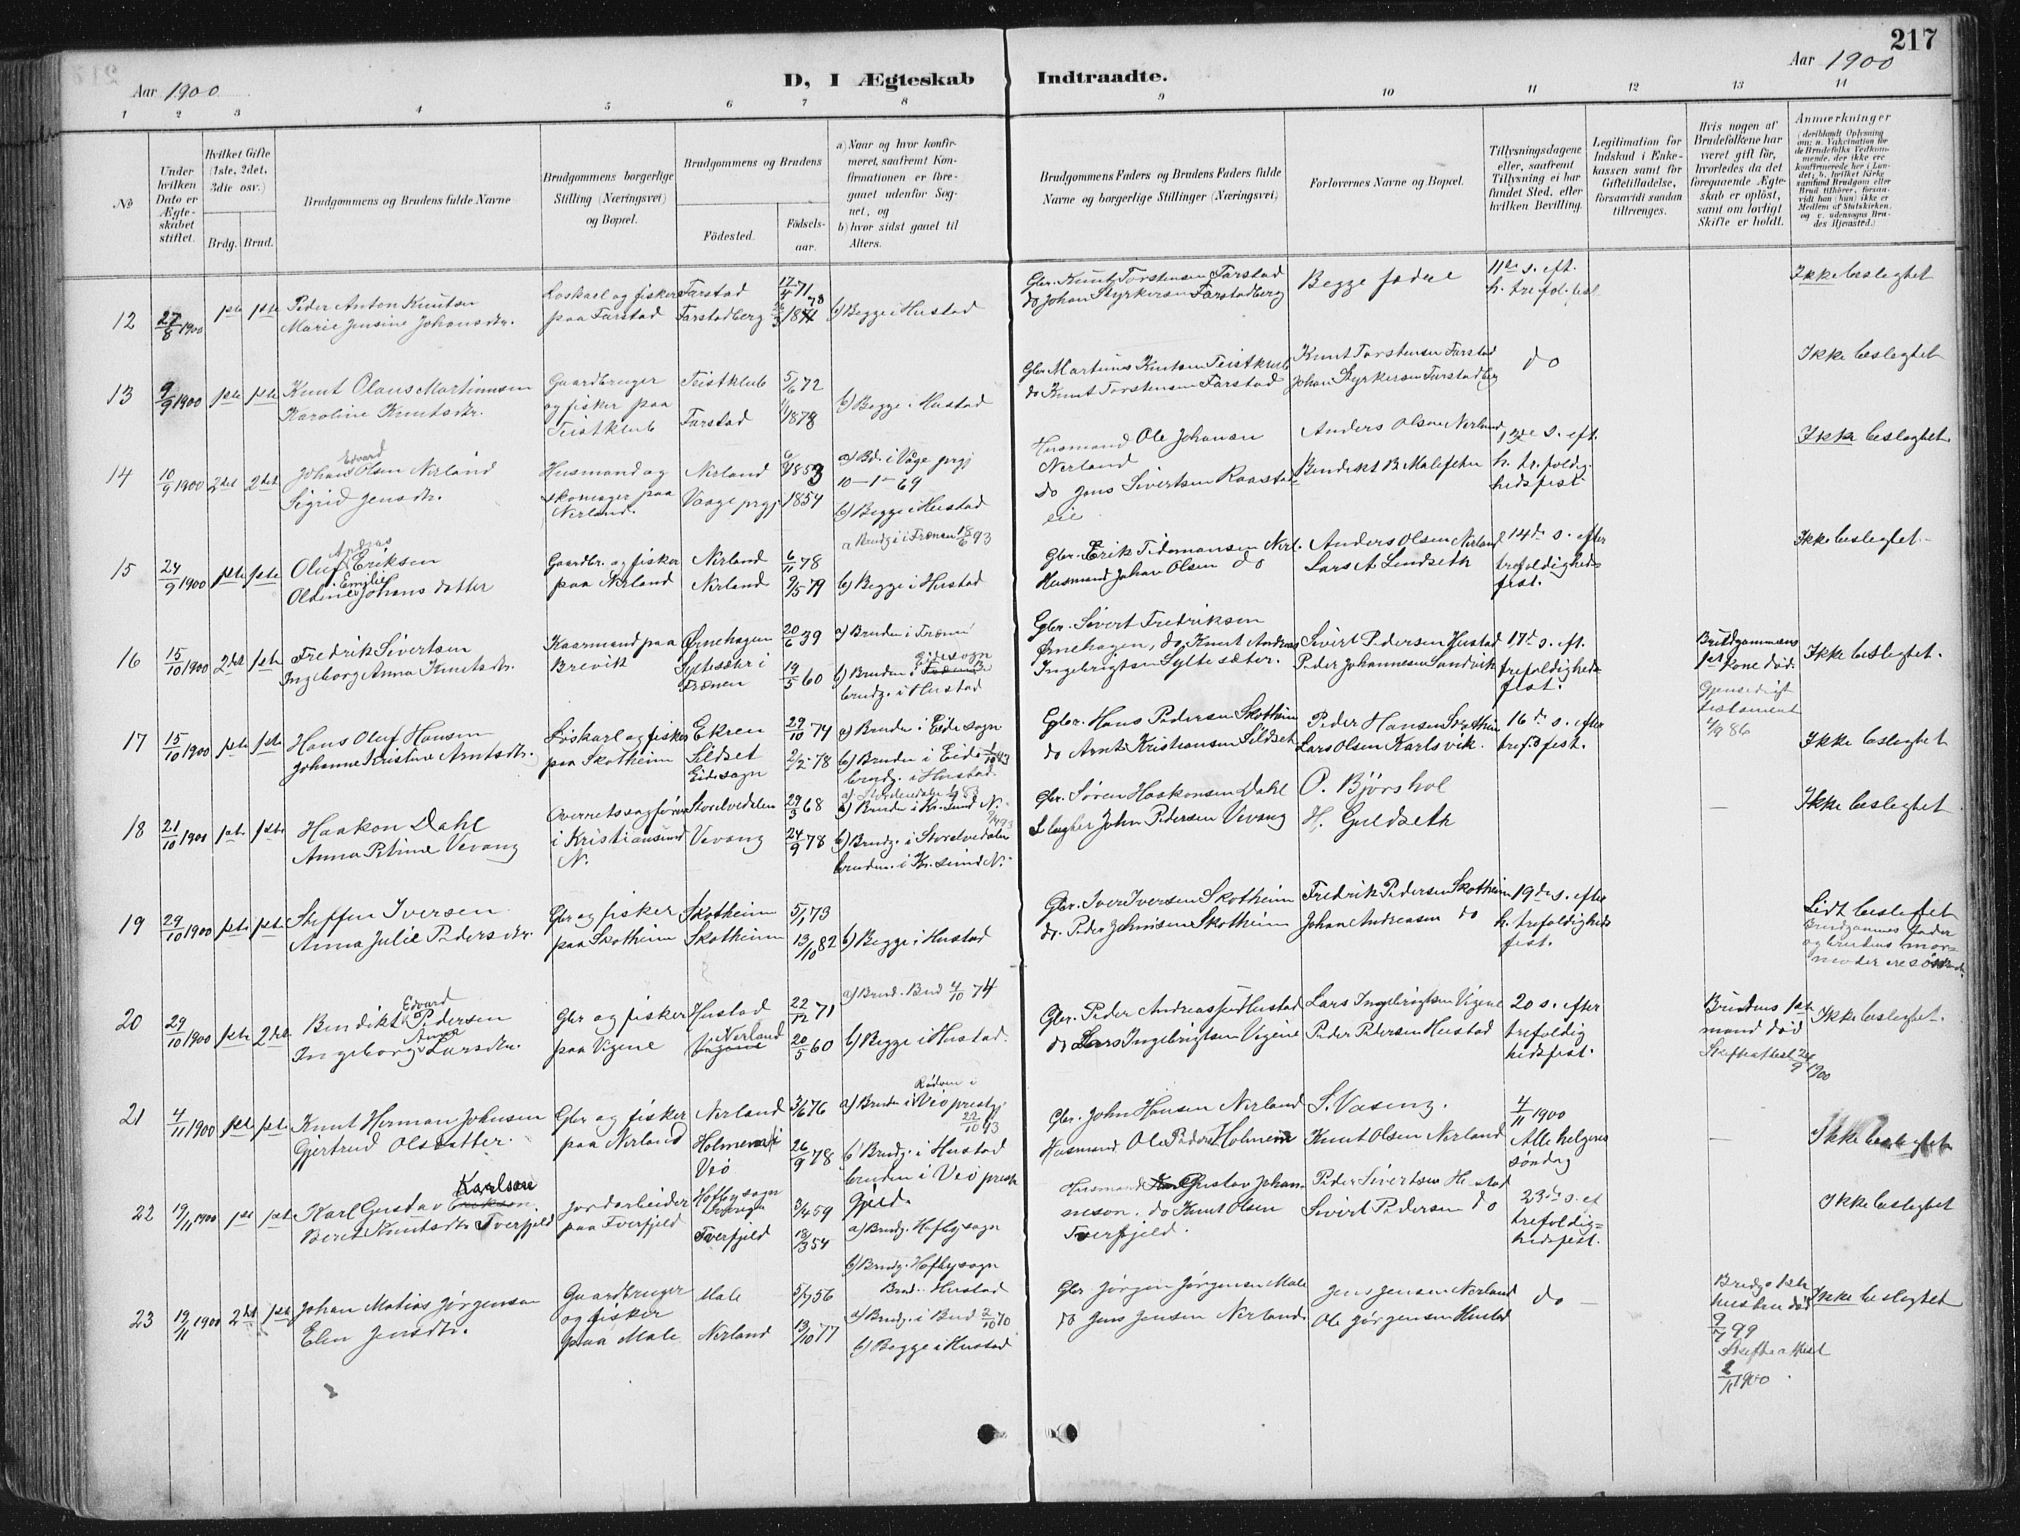 217
Aar 1900
D, I Ægteskab Indtraadte.
Aar 1900
1 2 3 4 5 6 7 8 9 10 11 12 13 14
No
Under hvilken Dato er Ægteskabet stiftet.
Hvilket Gifte (1ste, 2det, 3die osv.)
Brdg. Brud.
Brudgommens og Brudens fulde Navne
Brudgommens borgerlige Stilling (Næringsvei) og Bopæl.
Brudgommens og Brudens
Fødested. Fødselsaar.
a) Naar og hvor konfirmeret, saafremt Konfirmationen er foregaaet udenfor Sognet, og
b) hvor sidst gaaet til Alters.
Brudgommens Faders og Brudens Faders fulde Navne og borgerlige Stillinger (Næringsvei)
Forlovernes Navne og Bopæl.
Tillysningsdagene eller, saafremt Tillysning ei har fundet Sted, efter hvilken Bevilling.
Legitimation for Indskud i Enkekassen samt for Giftetilladelse, forsaavidt saadan tiltrænges.
Hvis nogen af Brudefolkene har været gift før, hvorledes da det foregaaende Ægteskab er opløst, samt om lovligt Skifte er holdt.
Anmærkninger
12 27/8 1900 1ste 1ste
Peder Anton Knutsen
Marie Jensine Johansdtr.
Løskael og fisker
paa Farstad
Farstad 17/4 71
Farstadberg
b) Begge i Hustad
Gbr. Knut Torstensen Farstad
do Johan Styrkersen Farstadberg
Begge fødre
11te s. eft.
h. trefol.fest
Ikke beslegtet
13 9/9 1900 1ste 1ste
Knut Olaus Martinusen
Karoline Knutsdtr.
Gaardbruger
og fisker paa
Teistklub
Teistklub 5/6 72
Farstad 1878
b) Begge i Hustad
Gbr Martinus Knutsen Teistklub
do Knut Torstensen Farstad
Knut Torstensen Farstad
Johan Styrkersen Farstadberg
do
Ikke beslegtet
14 10/9 1900 2det 2det
Johan Edvard Olsen Nerland
Sigrid Jensdtr.
Husmand og
skomager paa
Nerland.
Nerland 1853
Vaage prgj 1854
a) Bd. i Våge prgj
10-1-69
b) Begge i Hustad
Husmand Ole Johansen
Nerland
do Jens Sivertsen Raastad
eie
Anders Olsen Nerland
Bendikt B. Malefeten
13de s. eft.
h. tr. foldig
hedsfest
Ikke beslegtet.
15 24/9 1900 1ste 1ste
Oluf Andreas Eriksen
Oldine Emilie Johansdatter
Gaardbr. og fisker
paa Nerland
Nerland 6/11 78
Nerland 9/5 79
a Brudg i i Frænen 18/6 93
b) Begge i Hustad
Gbr. Erik Tidemansen Nerl.
Husmand Johan Olsen do
Anders Olsen Nerland
Lars A Lindseth
14de s. efter
trefoldigheds
fest.
Ikke beslegtet.
16 15/10 1900 2det 1ste
Fredrik Sivertsen
Ingeborg Anna Knutsdtr.
Kaarmand paa
Brevik
Ørnehagen 20/6 39
Syltesæter i
Frænen 19/5 60
a) Bruden i Fræne
b) Bruden i Eidesogn
brudg. i Hustad
Gbr. Sivert Fredriksen
Ørnehagen, do Knut Andreas
Ingebrigtsen Syltesæter.
Sivert Pedersen Hustad
Peder Johannesen Sandvik
17de s. eft.
trefoldigheds
fest.
Brudgommens
1ste kone død.
Gjensidigt
testament
4/9 86
Ikke beslegtet.
17 15/10 1900 1ste 1ste
Hans Oluf Hansen
Johanne Kristine Arntsdtr.
Løskarl og fisker
paa Skotheim
Ekren 29/10 74
Sildset 2/2-78
Eidesogn
a) Bruden i Eidesogn
b) Bruden i Eide 1/10 93
brudg. i Hustad.
Gbr. Hans Pedersen Skotheim
do Arnt Kristiansen Sildset
Peder Hansen Skotheim
Lars Olsen Karlsvik.
16de s. efter
tref.d fest.
Ikke beslegtet
18 21/10 1900 1ste 1ste
Haakon Dahl
Anna Petrine Vevang
Overretssagfører
i Kristiansund
N.
Storelvedalen 29/3 68
Vevang 24/9 78
a) Storelvedalen 83
a) Bruden i Kr.sund N.
b) Brudg. i Storelvedalen
bruden i Kr. sund N.
Gbr. Søren Haakonsen Dahl
Slagter John Pedersen Vevang
P. Bjørshol
H. Guldseth
Ikke beslegtet
19 29/10 1900 1ste 1ste
Steffen Iversen
Anna Julie Pedersdtr.
Gbr og fisker
paa Skotheim
Skotheim 5/1 73
Skotheim 13/10 82
b) Begge i Hustad
Gbr. Iver Iversen Skotheim
do. Peder Johnsen Skotheim
Fredrik Pedersen Skotheim
Johan Andreasen do
19de s. efter
h. trefoldigheds
fest.
Lidt beslegtet
brudgommens fader
og brudens mor-
moder ere søskend.
20 29/10 1900 1ste 2det
Bendikt Edvard Pedersen
Ingeborg Anna Larsdtr.
Gbr og fisker
paa Vigene
Hustad 22/12 71
Nerland 20/5 60
a) Brud. Bud 4/10 74
b) Begge i Hustad.
Gbr. Peder Andreassen Hustad
do Lars Ingebrigtsen Vigene
Lars Ingebrigtsen Vigene
Peder Pedersen Hustad
20 s. efter
trefoldig
hedsfest.
Brudens 1ste
mand død
Skifteattest 24/9 1900
Ikke beslegtet.
21 4/11 1900 1ste 1ste
Knut Herman Johnsen
Gjertrud Olsdatter.
Gbr og fisker
paa Nerland
Nerland 3/6 76
Holmem i
Veø 26/9 78
a) Bruden i Rødven i Veø prestgj. 22/10 93
b) Brudg. i Hustad
bruden i Veø prest
gjeld.
Gbr. John Hansen Nerland
Husmand Ole Peders Holmem
S. Vaseng.
Knut Olsen Nerland
4/11 1900
Alle helgens
søndag
Ikke beslegtet
22 19/11 1900 1ste 1ste
Karl Gustav Karlson
Beret Knutsdtr Tverfjeld
Jordarbeider
paa Tverfjeld
Hofbysogn
Sverige 3/4 59
Tverfjeld 54
a) Brudg. Hofbysogn
b) Brudg. Hofbysogn
Brud.. Hustad
Husmand Gustav Johan-
neson. do Knut Olsen
Tverfjeld.
Peder Sivertsen Hustad
Sivert Pedersen do
23de s. ef
trefoldig-
hedsfest.
Ikke beslegtet
23 19/11 1900 2det 1ste
Johan Matias Jørgensen
Elen Jensdtr.
Gaardbruger
og fisker
paa Male
Male 5/7 56
Nerland 13/10 77
a) Brudg. i Bud 2/10 70
b) Begge i Hustad
Gbr Jørgen Jørgensen Male
do Jens Jensen Nerland
Jens Jensen Nerland
Ole Jørgensen Hustad
do
Brudg. 1ste
hustru død
9/7 99
Skifteattest
2/11 1900.
Ikke beslegtet